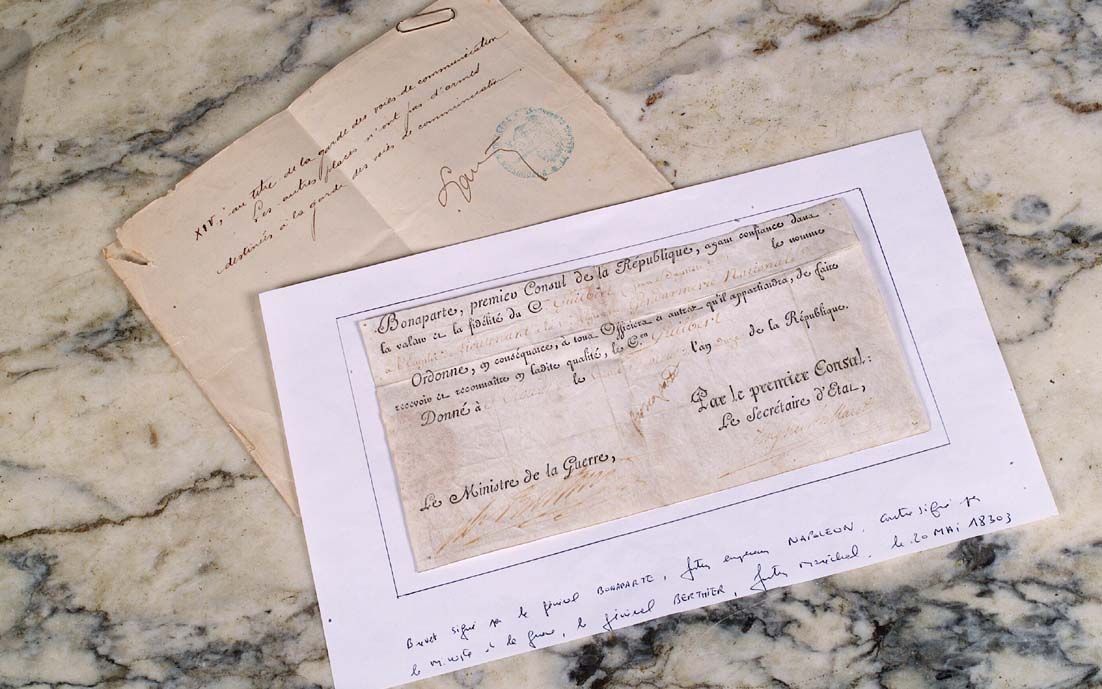 XIV, au titre de la garde des voies de communication
Les autres places n'ont pas d'armes
destinées à la garde des voies de communication.
Bonaparte, premier Consul de la République, ayant confiance dans
la valeur et la fidélité du C. Guibert le nomme
à l'emploi de Lieutenant Gendarmerie Nationale
Ordonne, en conséquence, à tous Officiers et autres qu'il appartiendra, de faire
recevoir et reconnaître en ladite qualité, le C.en Guibert
Donné à le l'an de la République.
Par le premier Consul:
Le Secrétaire d'Etat,
Le Ministre de la Guerre,
Brevet signé par le général BONAPARTE, futur empereur NAPOLEON, contresigné par
le ministre de la guerre, le général BERTHIER, futur Maréchal. le 20 MAI 18303